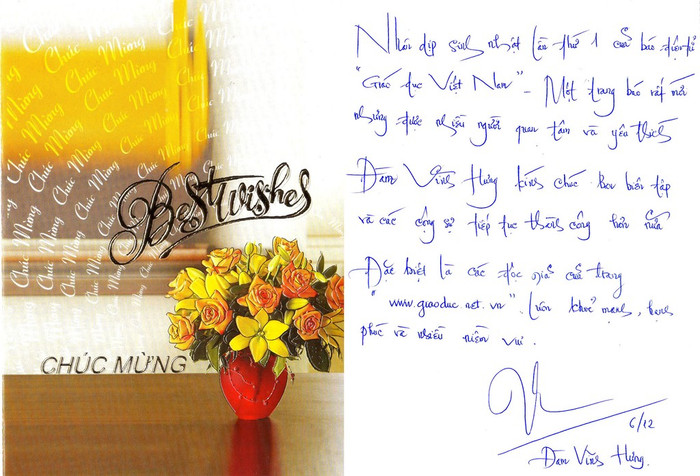 Chúc Mừng
Best Wishes
CHÚC MỪNG
Nhân dịp sinh nhật lần thứ 1 của báo điện tử
"Giáo dục Việt Nam" - Một trang báo rất mới
nhưng được nhiều người quan tâm và yêu thích
Đàm Vĩnh Hưng kính chúc ban biên tập
và các cộng sự tiếp tục thành công hơn nữa
Đặc biệt là các độc giả của trang
"www.giaoduc.net.vn". Luôn khoẻ mạnh, hạnh
phúc và nhiều niềm vui.
6/12
Đàm Vĩnh Hưng